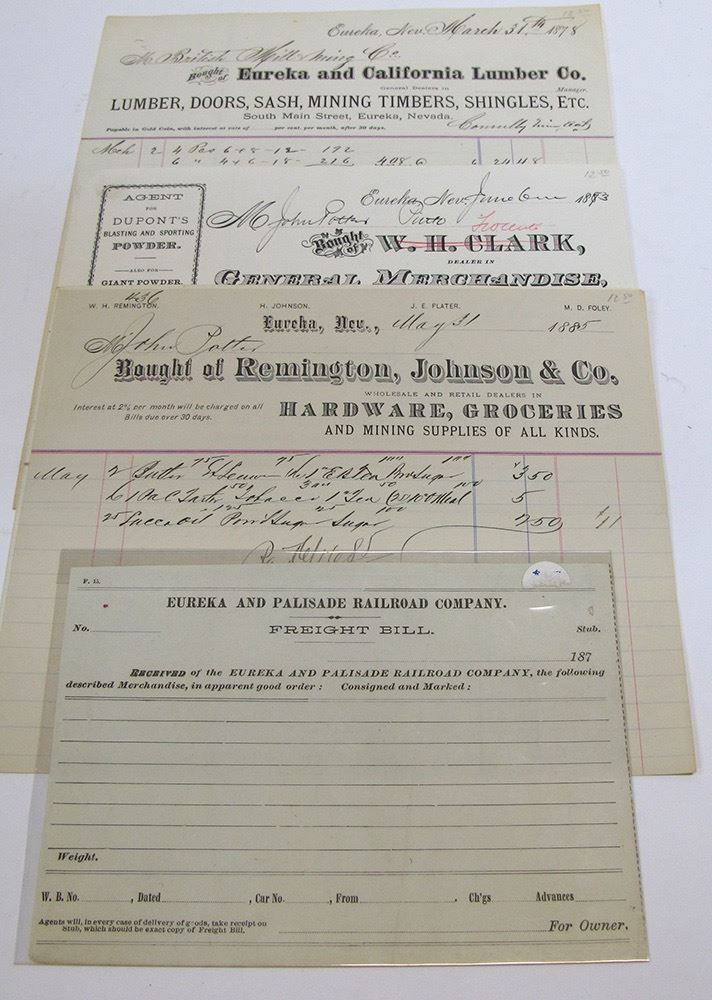 12.50
Eureka, Nev. March 31th 1878
M British Mill & Ming Co
Bought of Eureka and California Lumber Co.
General Dealers in
Manager.
LUMBER, DOORS, SASH, MINING TIMBERS, SHINGLES, ETC.
South Main Street, Eureka, Nevada.
Payable in Gold Coin, with interest at rate of per cent. per month, after 30 days.
Mch 2 4 Pcs 6+8-12- 192
6 " 4+6-18- 216 408 @ 6 24 48
12.50
AGENT
FOR
DUPONT'S
BLASTING AND SPORTING
POWDER.
ALSO FOR
GIANT POWDER
Eureka, Nev. June 1883
M John Potter
Bought of W. H. CLARK,
DEALER IN
GENERAL MERCHANDISE,
12.50
436
W. H. REMINGTON. H. JOHNSON. J. E. PLATER. M. D. FOLEY.
Eureka, Nev., May 31 1885
M John Potter
Bought of Remington, Johnson & Co.
WHOLESALE AND RETAIL DEALERS IN
Interest at 2% per month will be charged on all
Bills due over 30 days.
HARDWARE, GROCERIES
AND MINING SUPPLIES OF ALL KINDS.
May 2 Butter Tea Sugar 3 50
Tobacco 1 Tea Meal 5
25 Sugar 2 50 $11
F. 15.
EUREKA AND PALISADE RAILROAD COMPANY.
No. FREIGHT BILL. Stub.
187
RECEIVED of the EUREKA AND PALISADE RAILROAD COMPANY, the following
described Merchandise, in apparent good order : Consigned and Marked :
Weight.
W. B. No. , Dated , Car No. , From . Ch'gs Advances
Agents will, in every case of delivery of goods, take receipt on
Stub, which should be exact copy of Freight Bill.
For Owner.